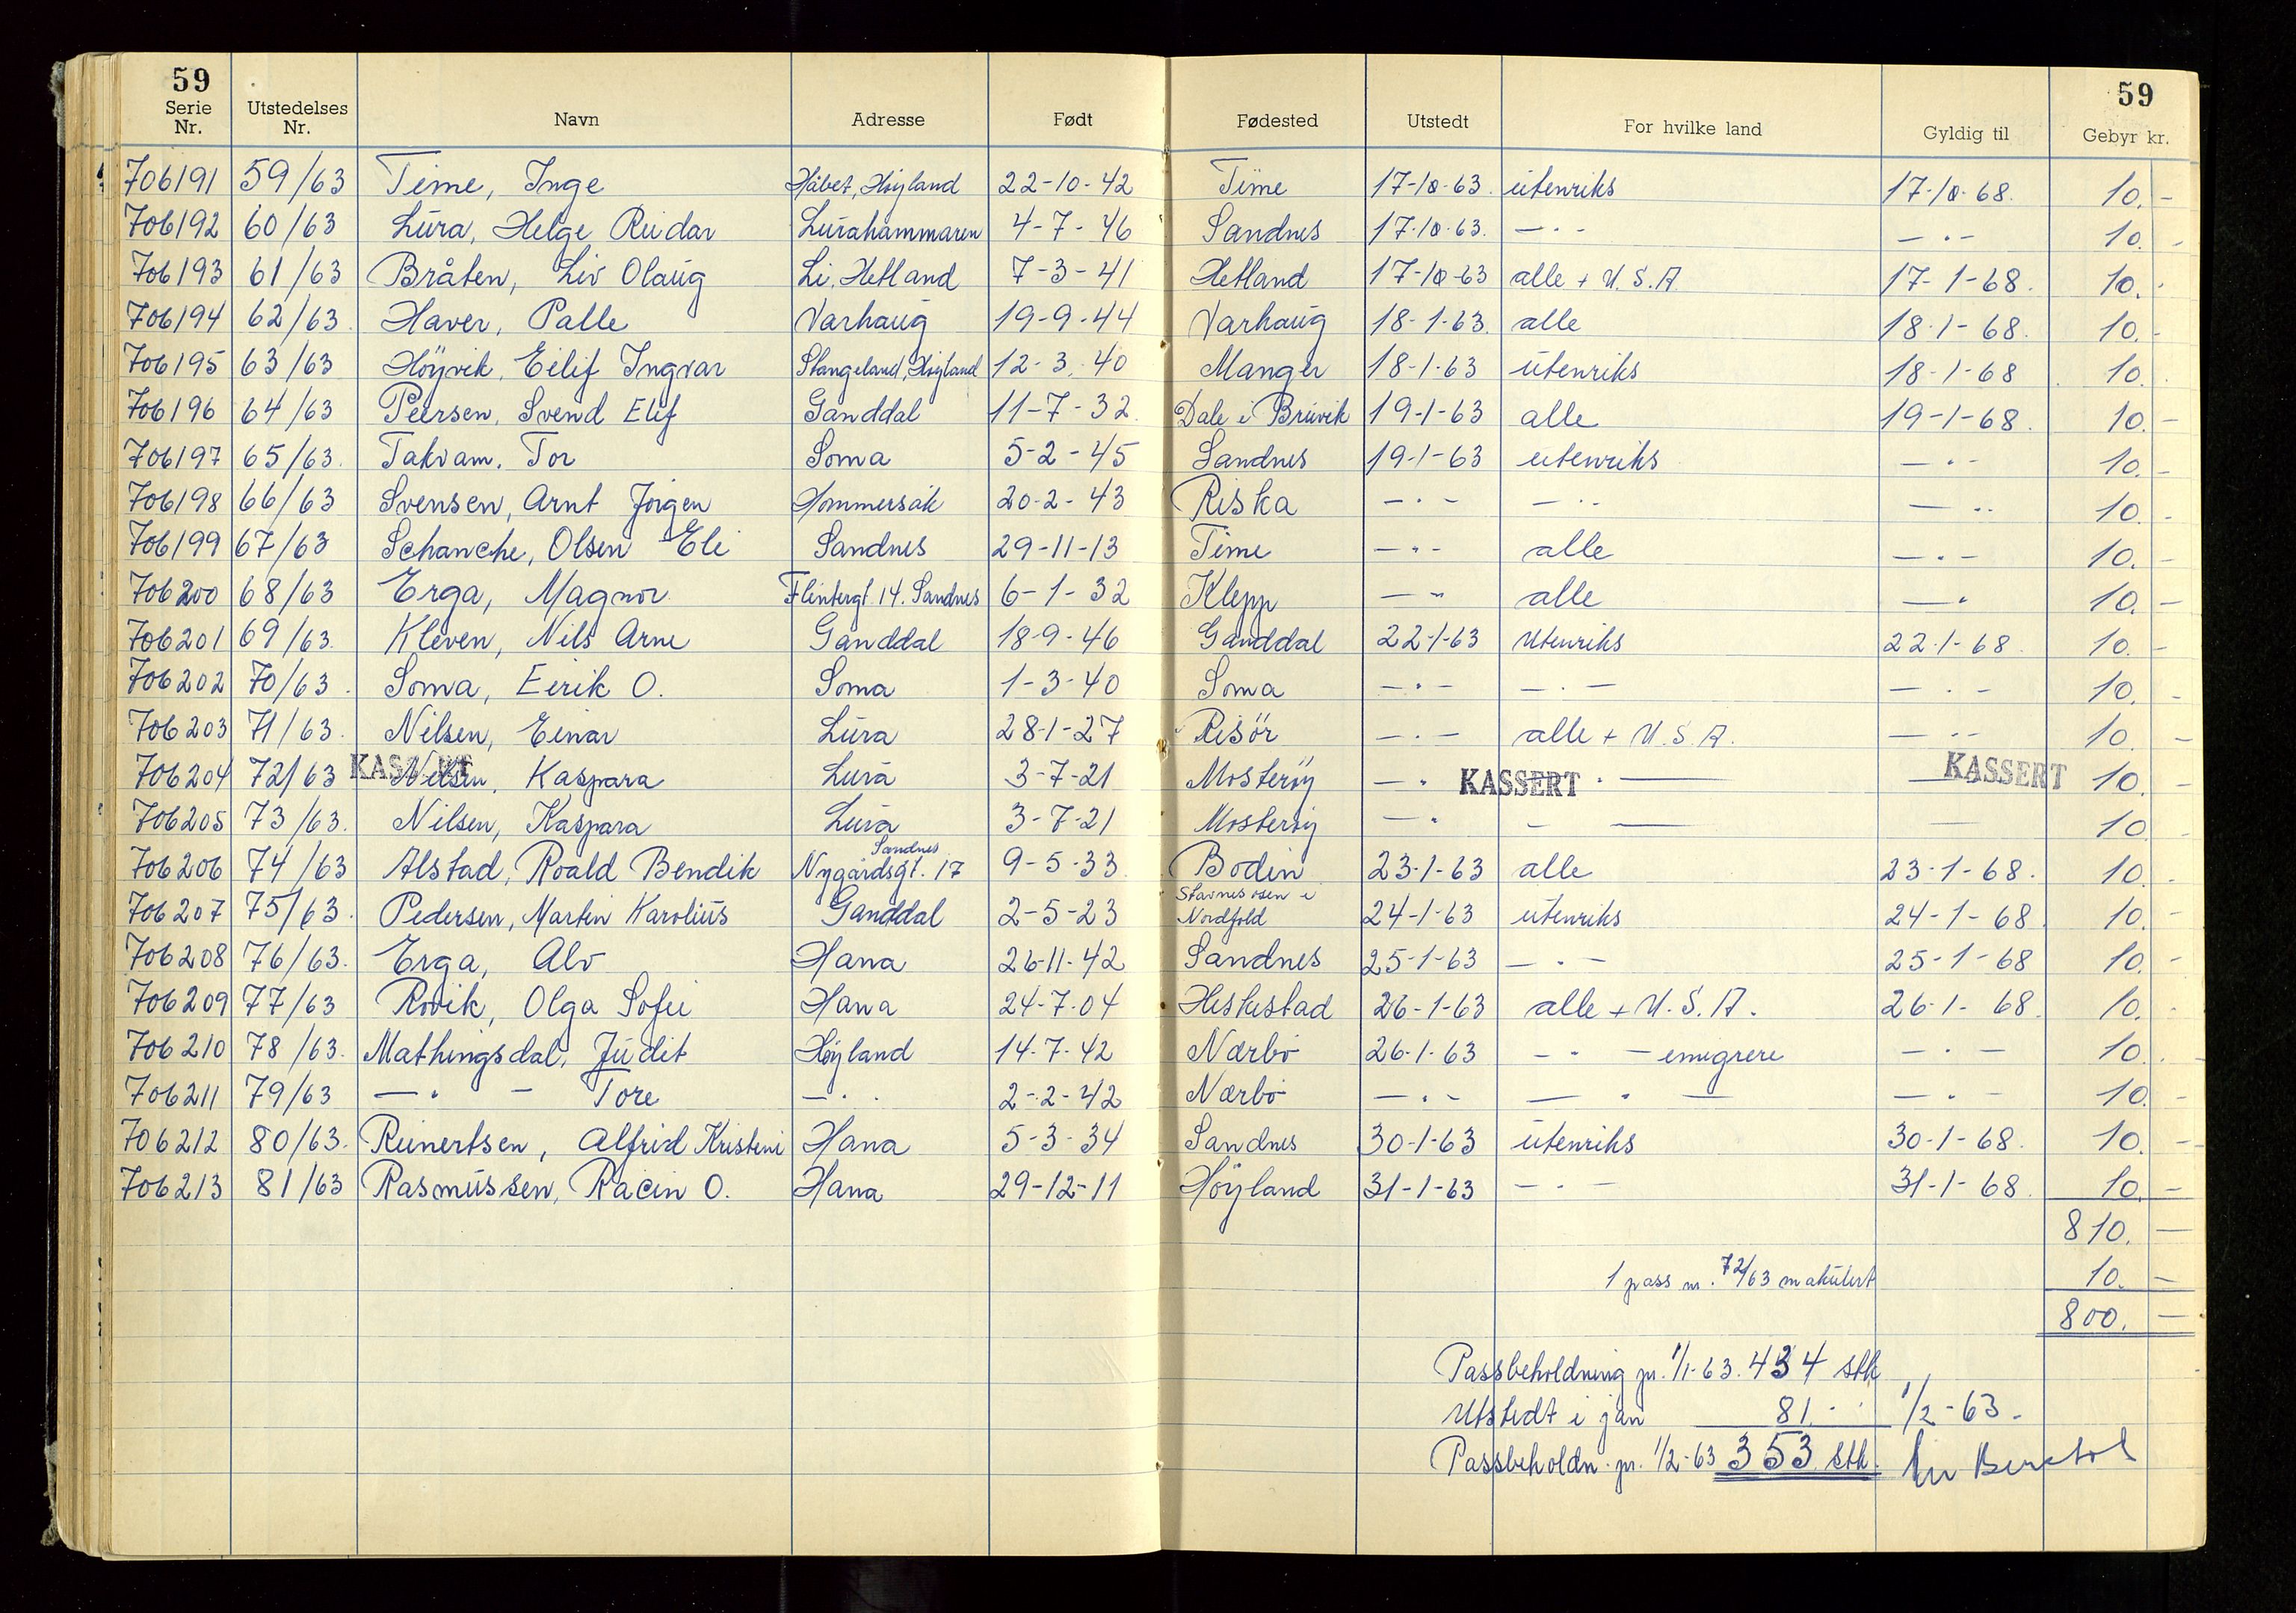 59 59
Serie Nr. Utstedelses Nr. Navn Adresse Født Fødested Utstedt For hvilke land Gyldig til Gebyr kr.
706191 59/63 Time, Inge Håbet, Høyland 22-10-42 Time 17-10-63. utenriks 17-10-68. 10.-
706192 60/63 Lura, Helge Reidar Lurahammaren 4-7-46 Sandnes 17-10-63. —·- —·- 10.-
706193 61/63 Bråten, Liv Olaug Li, Hetland 7-3-41 Hetland 17-10-63 alle + U.S.A. 17-1-68. 10.-
706194 62/63. Haver, Palle Varhaug 19-9-44 Varhaug 18-1-63. alle 18-1-68. 10.-
706195 63/63 Höyvik, Eilif Ingvar Stangeland, Høyland 12-3-40 Manger 18-1-63 utenriks 18-1-68 10.
706196 64/63 Peersen, Svend Elif Ganddal 11-7-32. Dale i Bruvik 19-1-63 alle 19-1-68. 10.-
706197 65/63. Takvam, Tor Soma 5-2-45 Sandnes 19-1-63 utenriks —·- 10.-
706198 66/63 Svensen, Arnt Jørgen Hommersåk 20-2-43 Riska —·- —·- —·- 10.-
706199 67/63 Schanche, Olsen Eli Sandnes 29-11-13 Time —·- alle —·- 10.-
706200 68/63 Erga, Magnor Flintergt. 14. Sandnes 6-1-32 Klepp —·- alle —·- 10.-
706201 69/63. Kleven, Nils Arne Ganddal 18-9-46 Ganddal 22-1-63 utenriks 22-1-68. 10.-
706202 70/63. Soma, Eirik O. Soma 1-3-40 Soma —·- —·- —·- 10.-
706203 71/63. Nilsen, Einar Lura 28-1-27 Risör —·- alle + U.S.A. —·- 10.-
706204 72/63 KASSERT Nilsen, Kaspara Lura 3-7-21 Mosterøy —· KASSERT ·— KASSERT 10.-
706205 73/63. Nilsen, Kaspara Lura 3-7-21 Mosterøy —· - — — 10.-
706206 74/63 Alstad, Roald Bendik Nygårdsgt. 17 Sandnes 9-5-33 Bodin 23-1-63 alle 23-1-68. 10.-
706207 75/63. Pedersen, Martin Karolius Ganddal 2-5-23 Stavnesosen i Nordfold 24-1-63 utenriks 24-1-68. 10.-
706208 76/63. Erga, Alv Hana 26-11-42 Sandnes 25-1-63 —·- 25-1-68 10.-
706209 77/63 Rovik, Olga Sofie Hana 24-7-04 Heskestad 26-1-63 alle + U.S.A. 26-1-68. 10.-
706210 78/63. Mathingsdal, Judit Høyland 14-7-42 Nærbø 26-1-63 -·- emigrere —·- 10.-
706211 79/63 —·- Tore —·- 2-2-42 Nærbø —·- —·— —·- 10.-
706212 80/63. Reinertsen, Alfrid Kristine Hana 5-3-34 Sandnes 30-1-63 utenriks 30-1-68. 10.-
706213 81/63 Rasmussen, Racin O. Hana 29-12-11 Höyland 31-1-63 —·- 31-1-68. 10.-
810.—
1 pass nr. 72/63 makulert 10.—
800.—
Passbeholdning pr. 1/1-63. 434 stk
Utstedt i jan 81 -
Passbeholdn. pr. 1/2-63 353 stk.
1/2-63-